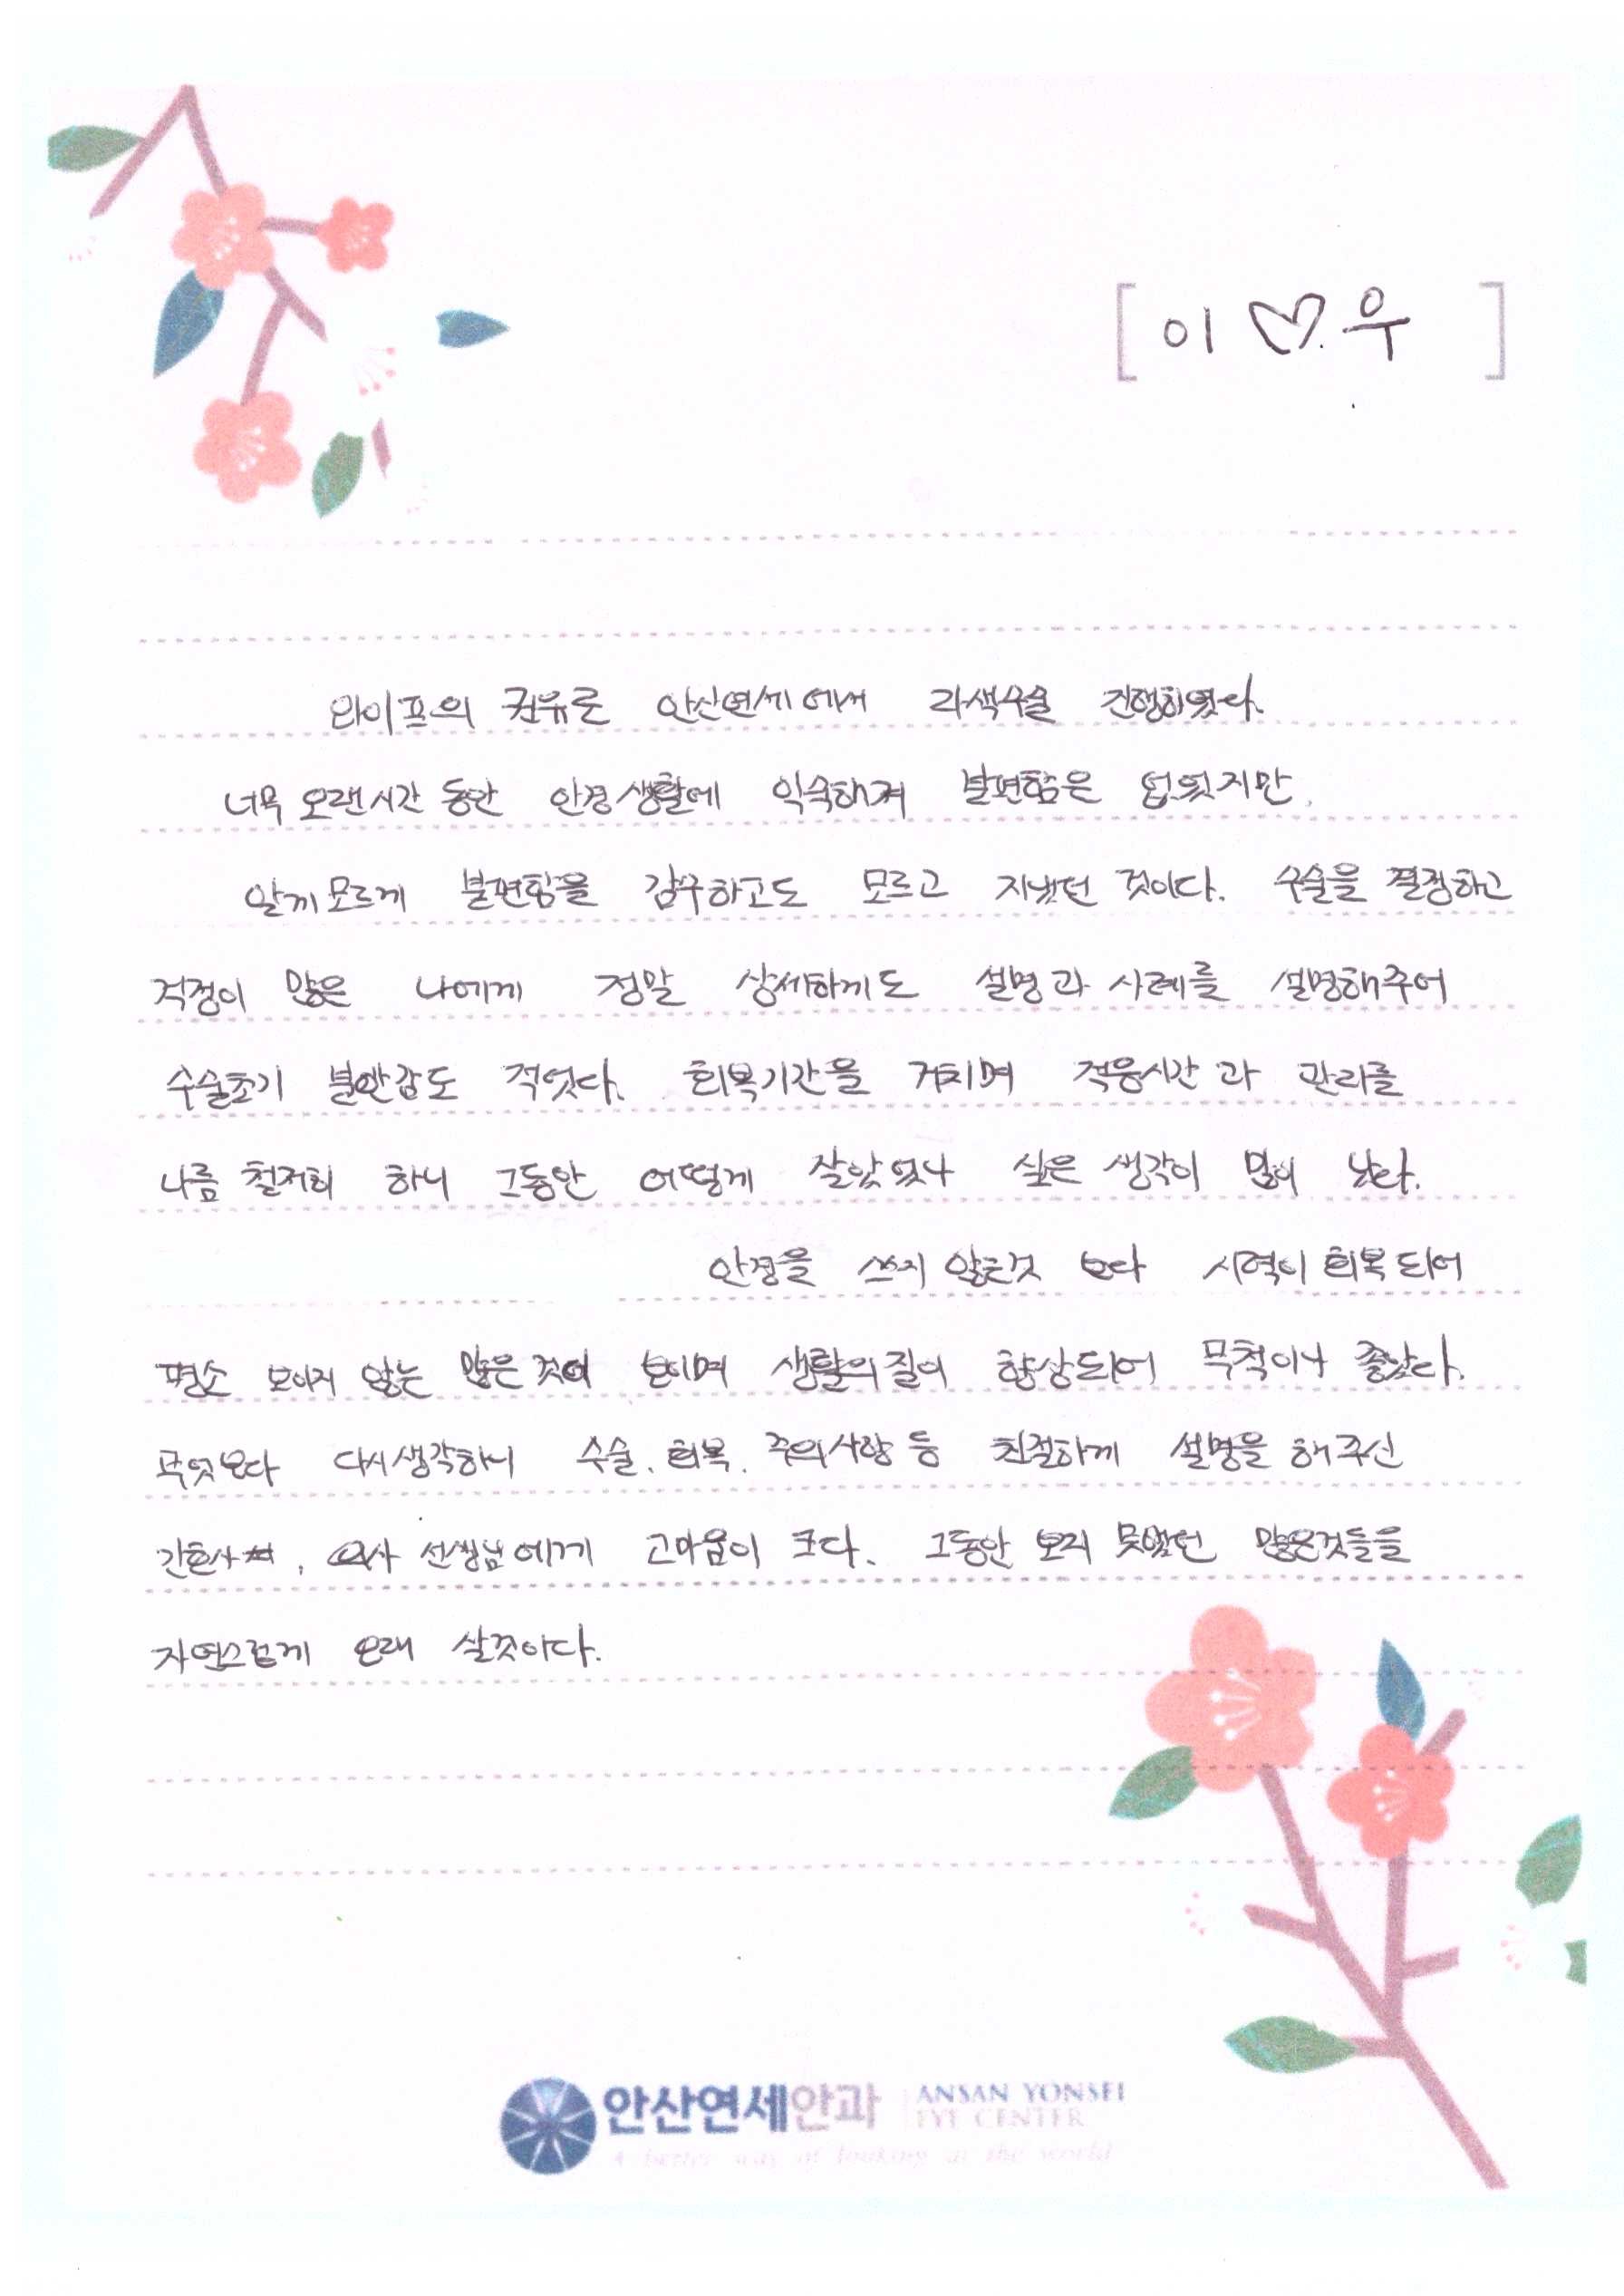 [ 이♡우 ]
와이프의 권유로 안산연세에서 라색수술 진행하였다.
너무 오랜시간 동안 안경생활에 익숙해져 불편함은 없었지만,
알게모르게 불편함을 감수하고도 모르고 지냈던 것이다. 수술을 결정하고
걱정이 많은 나에게 정말 상세하게도 설명과 사례를 설명해주어
수술초기 불안감도 적었다. 회복기간을 거치며 적응시간과 관리를
나름 철저히 하니 그동안 어떻게 살았었나 싶은 생각이 많이 났다.
안경을 쓰지 않는것 보다 시력이 회복되어
평소 보이지 않는 많은 것이 보이며 생활의 질이 향상되어 무척이나 좋았다.
무엇보다 다시생각하니 수술, 회복, 주의사항 등 친절하게 설명을 해주신
간호사, 의사 선생님에게 고마움이 크다. 그동안 보지 못했던 많은것들을
자연스럽게 오래 살것이다.
안산연세안과 ANSAN YONSEI
EYE CENTER
A better way of looking at the world